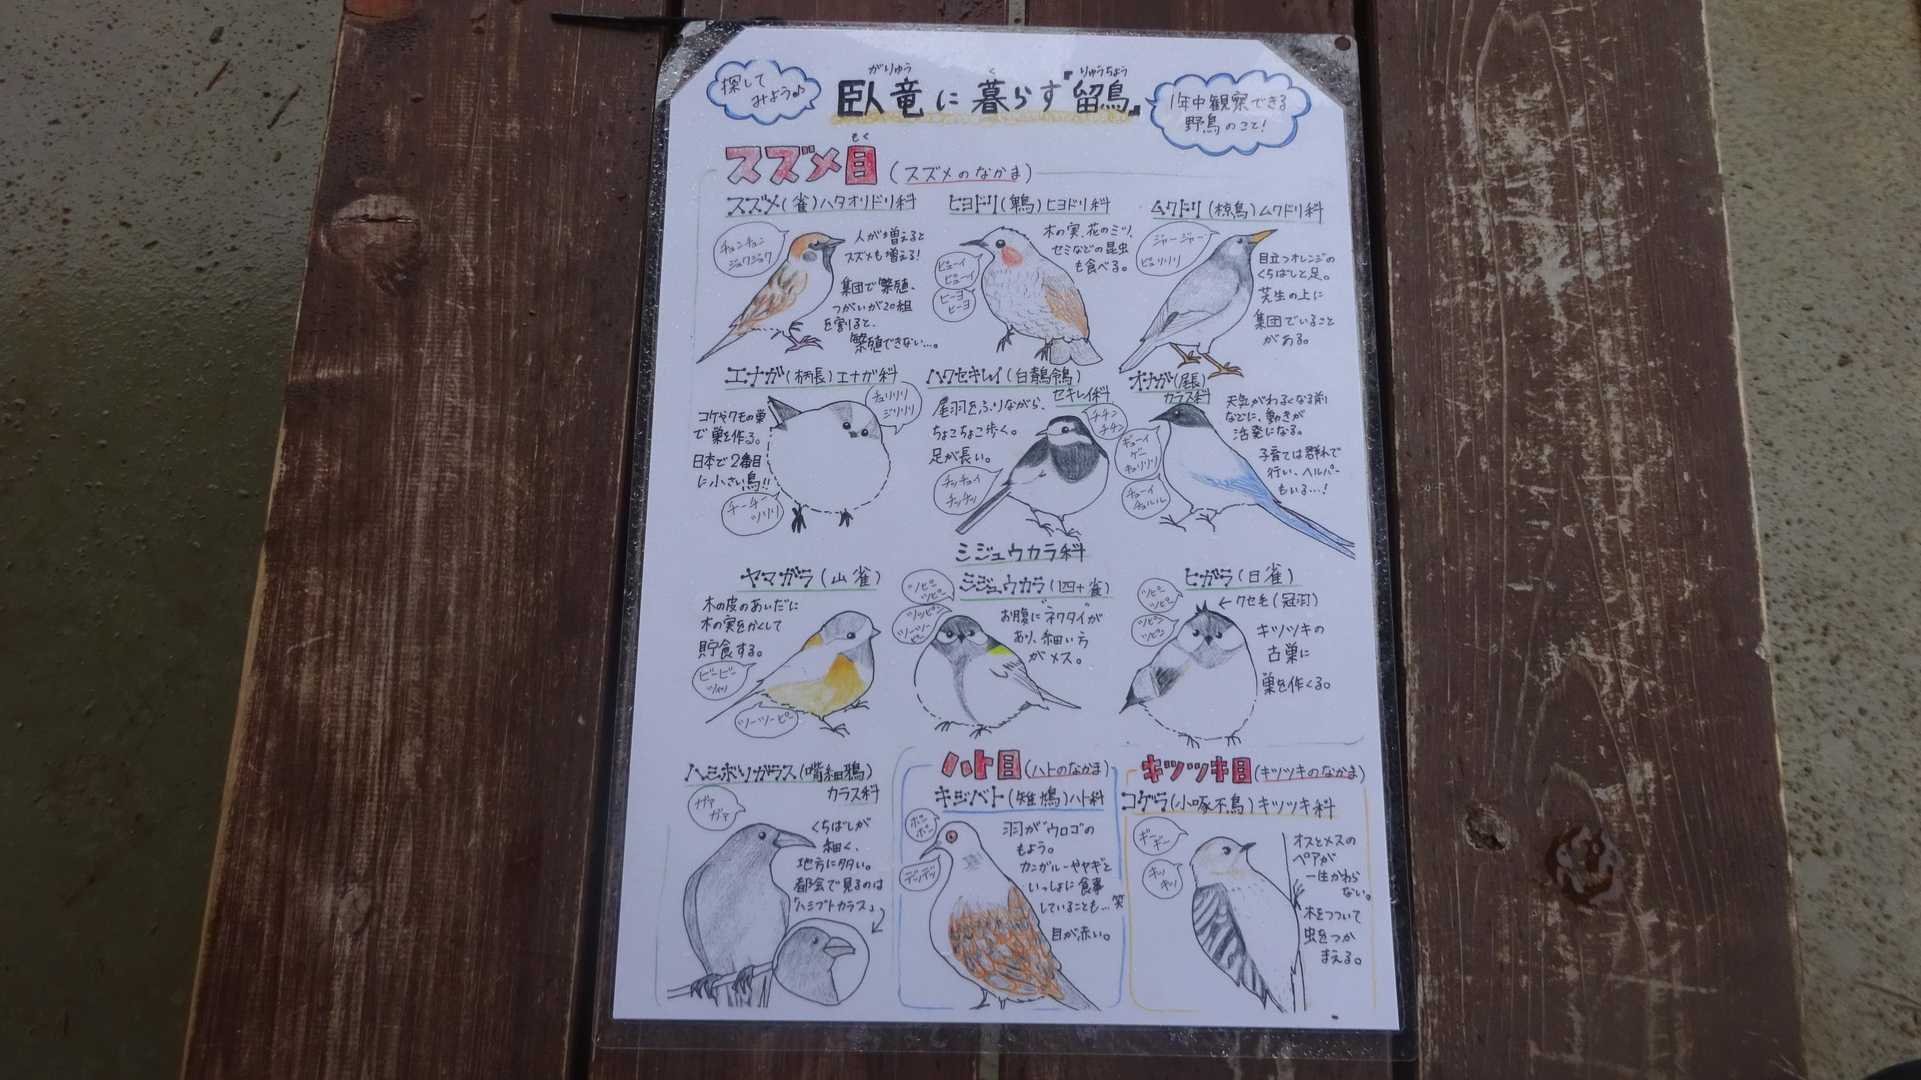 探して
みよう♪
がりゅう く りゅうちょう
臥竜に暮らす『留鳥』
1年中観察できる
野鳥のこと!
もく
スズメ目(スズメのなかま)
スズメ(雀)ハタオリドリ科
チュンチュン
ジュクジュク
人が増えると
スズメも増える!
集団で繁殖、
つがいが20組
を割ると、
繁殖できない…。
ヒヨドリ(鵯)ヒヨドリ科
ピューイ
ピューイ
ピーヨ
ピーヨ
木の実、花のミツ、
セミなどの昆虫
も食べる。
ムクドリ(椋鳥)ムクドリ科
ジャージャー
ピュリリリ
目立つオレンジの
くちばしと足。
芝生の上に
集団でいること
がある。
エナガ(柄長)エナガ科
チュリリリ
ジリリリ
コケやクモの巣
で巣を作る。
日本で2番目
に小さい鳥!!
チーチー
ツリリリ
ハクセキレイ(白鶺鴒)
セキレイ科
尾羽をふりながら、
ちょこちょこ歩く。
足が長い。
チチン
チチン
チッチョイ
チッチッ
オナガ(尾長)
カラス科
天気がわるくなる前
などに、動きが
活発になる。
子育ては群れで
行い、ヘルパー
もいる…!
ギューイ
ゲー
キュリリリ
チューイ
チュルル
シジュウカラ科
ヤマガラ(山雀)
木の皮のあいだに
木の実をかくして
貯食する。
ビービー
ツーツーピー
シジュウカラ(四十雀)
ツピー
ツピー
ツッピン
ツーツー
ピー
お腹に"ネクタイ"が
あり、細い方
がメス。
ヒガラ(日雀)
ツピン
ツピン
ツピン
ツピン
←クセ毛(冠羽)
キツツキの
古巣に
巣を作る。
ハシボソガラス(嘴細鴉)
カラス科
ガァ
ガァ
くちばしが
細く、
地方に多い。
都会で見るのは
「ハシブトガラス」
ハト目(ハトのなかま)
キジバト(雉鳩)ハト科
ポッ
ポッ
デッデッ
羽が"ウロコ"の
もよう。
カンガルーやヤギと
いっしょに食事
していることも…笑
目が赤い。
キツツキ目(キツツキのなかま)
コゲラ(小啄木鳥)キツツキ科
ギー
ギー
キッ
キッ
オスとメスの
ペアが
一生かわら
ない。
木をつついて
虫をつか
まえる。